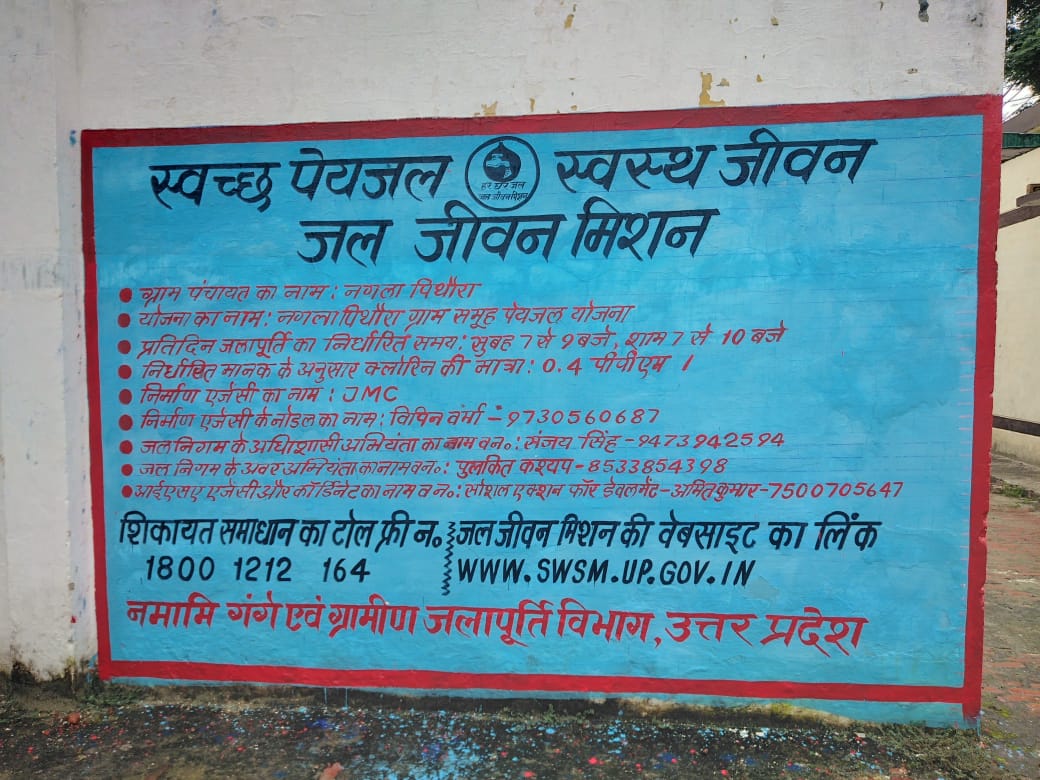 स्वच्छ पेयजल हर घर जल जल जीवन मिशन स्वस्थ जीवन
जल जीवन मिशन
ग्राम पंचायत का नाम : नगला पिथौरा
योजना का नाम : नगला पिथौरा ग्राम समूह पेयजल योजना
प्रतिदिन जलापूर्ति का निर्धारित समय : सुबह 7 से 9 बजे, शाम 7 से 10 बजे
निर्धारित मानक के अनुसार क्लोरिन की मात्रा : 0.4 पीपीएम ।
निर्माण एजेंसी का नाम : JMC
निर्माण एजेंसी के नोडल का नाम : विपिन वर्मा - 9730560687
जल निगम के अधिशासी अभियंता का नाम व न० : संजय सिंह - 9473942594
जल निगम के अवर अभियंता का नाम व न० : पुलकित कश्यप - 8533854398
आईएसए एजेंसी और कॉर्डिनेट का नाम व न० : सोशल एक्शन फॉर डेवलमेंट - अमित कुमार - 7500705647
शिकायत समाधान का टोल फ्री न० जल जीवन मिशन की वेबसाइट का लिंक
1800 1212 164 WWW.SWSM.UP.GOV.IN
नमामि गंगे एवं ग्रामीण जलापूर्ति विभाग, उत्तर प्रदेश